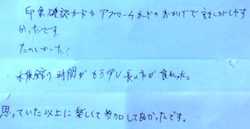 印象確認カードやアプローチカードのおかげで話しがしやす
かったです。
たのしかった!
の時間がもう少し長い方が良かった。
思っていた以上に楽しくて参加して良かったです。